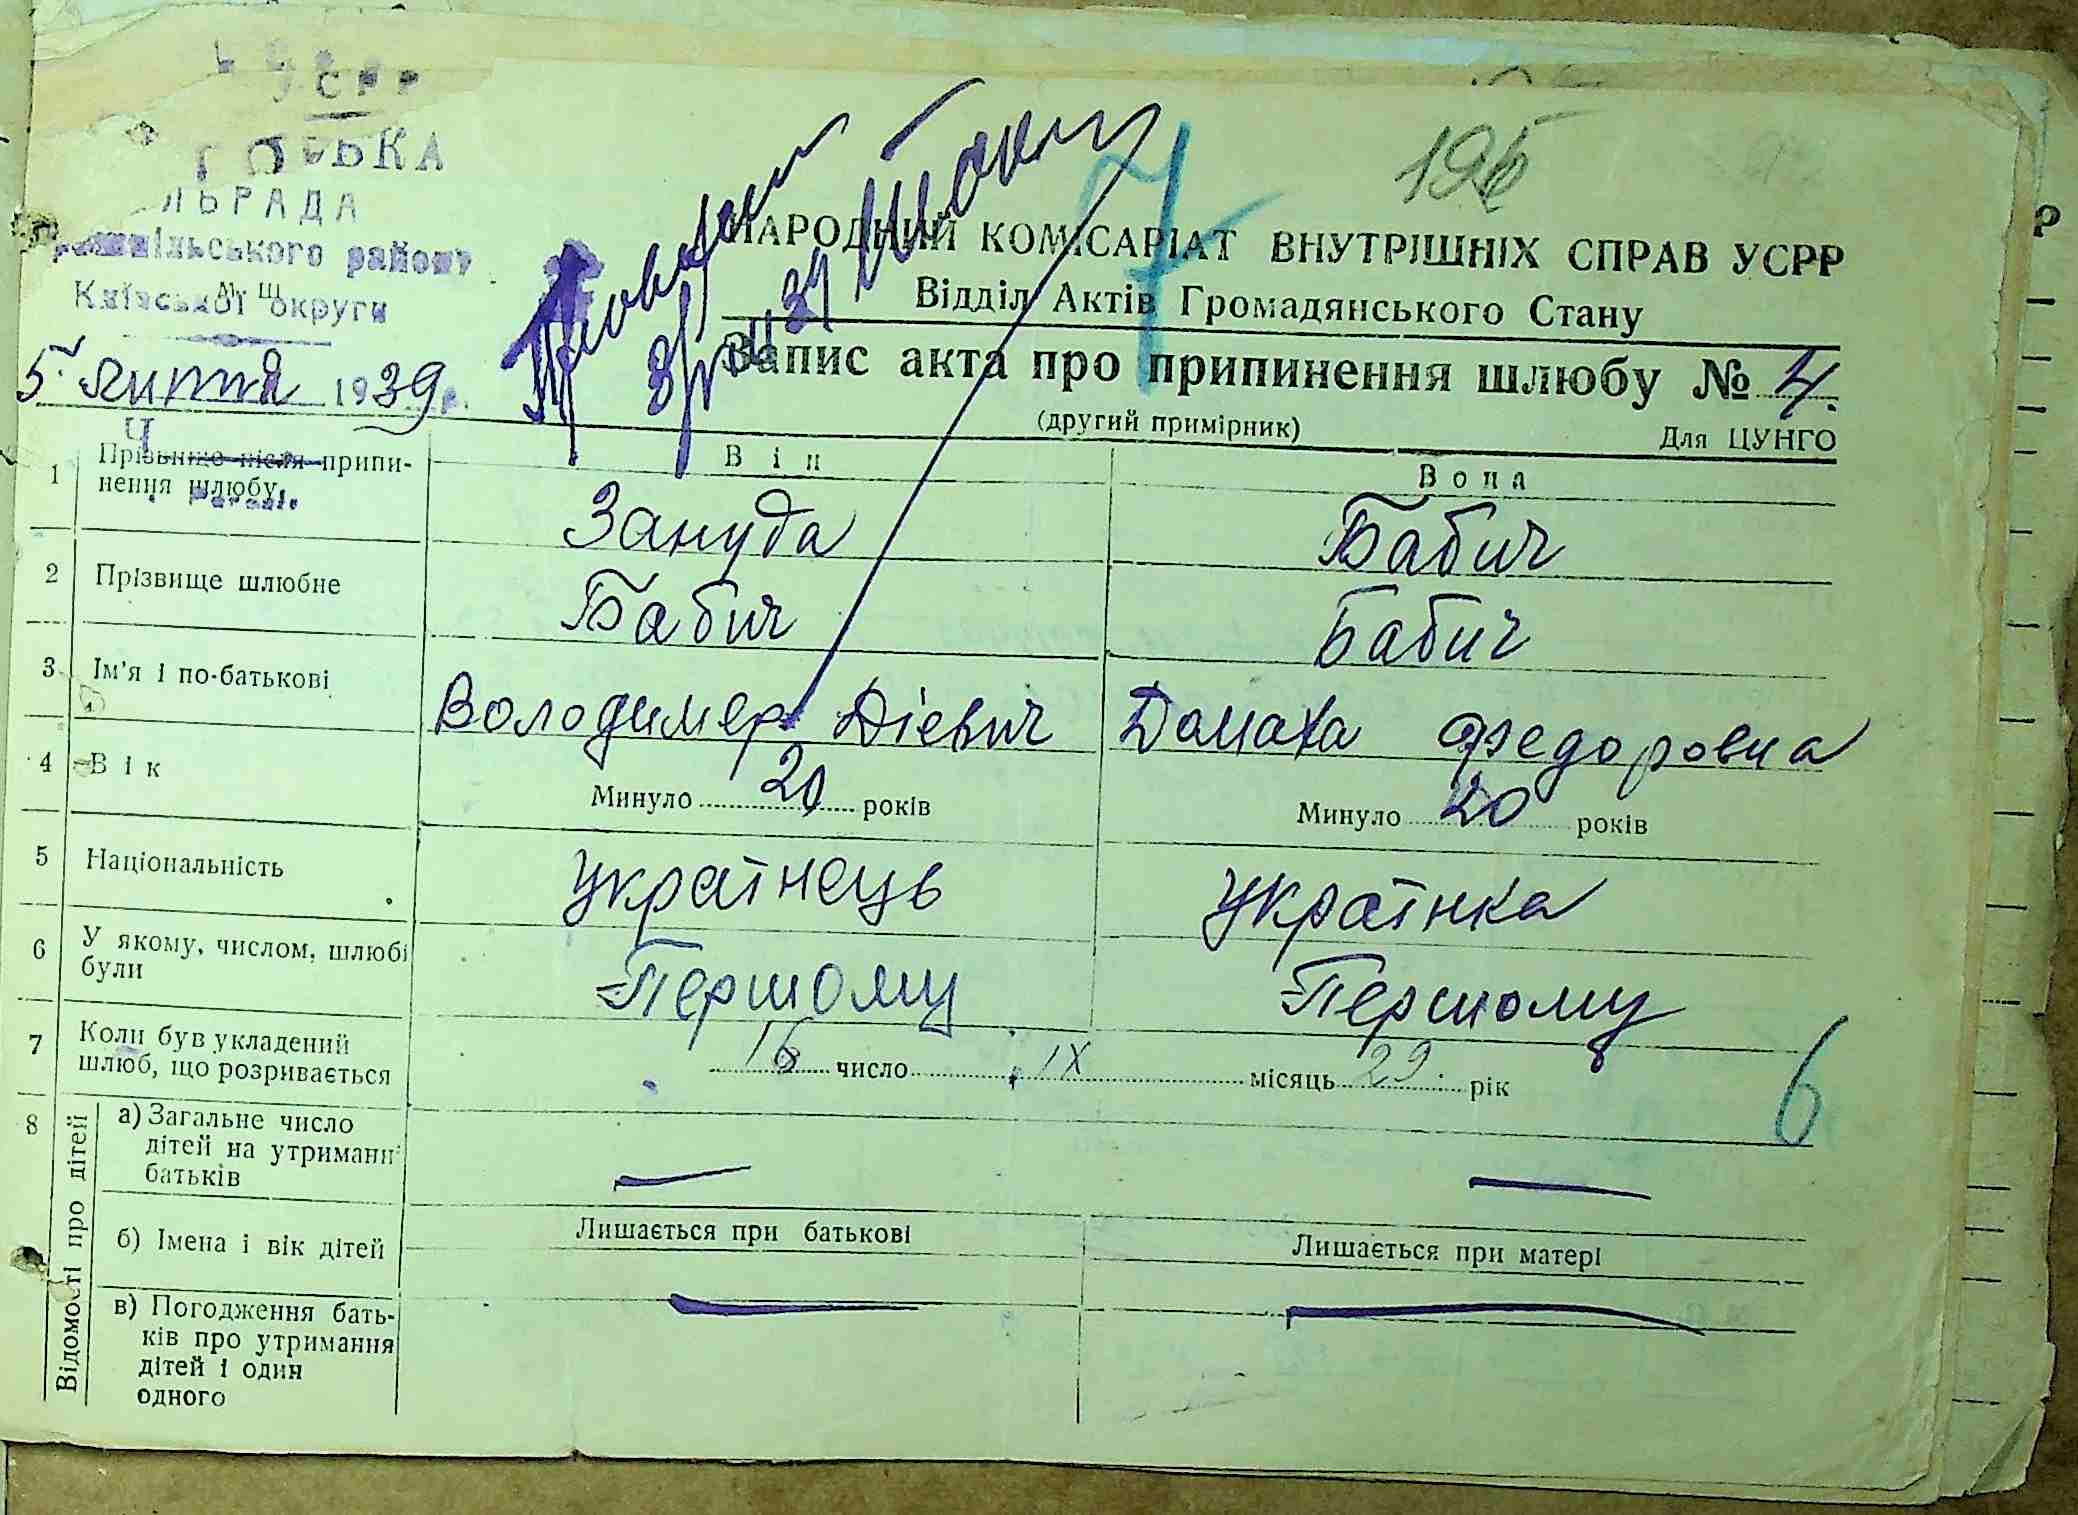 УСРР
ЛЬРАДА
району
Київської округи
195
7
НАРОДНИЙ КОМІСАРІАТ ВНУТРІШНІХ СПРАВ УСРР
Відділ Актів Громадянського Стану
Запис акта про припинення шлюбу № 4.
(другий примірник)
Для ЦУНГО
5 лютня 1939 р.
Він
Вона
1
Прізвище після припинення шлюбу
Зануда
Бабич
2
Прізвище шлюбне
Бабич
Бабич
3
Ім'я і по-батькові
Володимер Дієвич
Домаха Федоровна
4
Вік
Минуло 20 років
Минуло 20 років
5
Національність
Українець
Українка
6
У якому, числом, шлюбі
були
Першому
Першому
7
Коли був укладений
шлюб, що розривається
16 число IX місяць 29. рік
6
8
Відомості про дітей
а) Загальне число
дітей на утриманні
батьків
б) Імена і вік дітей
Лишається при батькові
Лишається при матері
в) Погодження бать-
ків про утримання
дітей і один
одного